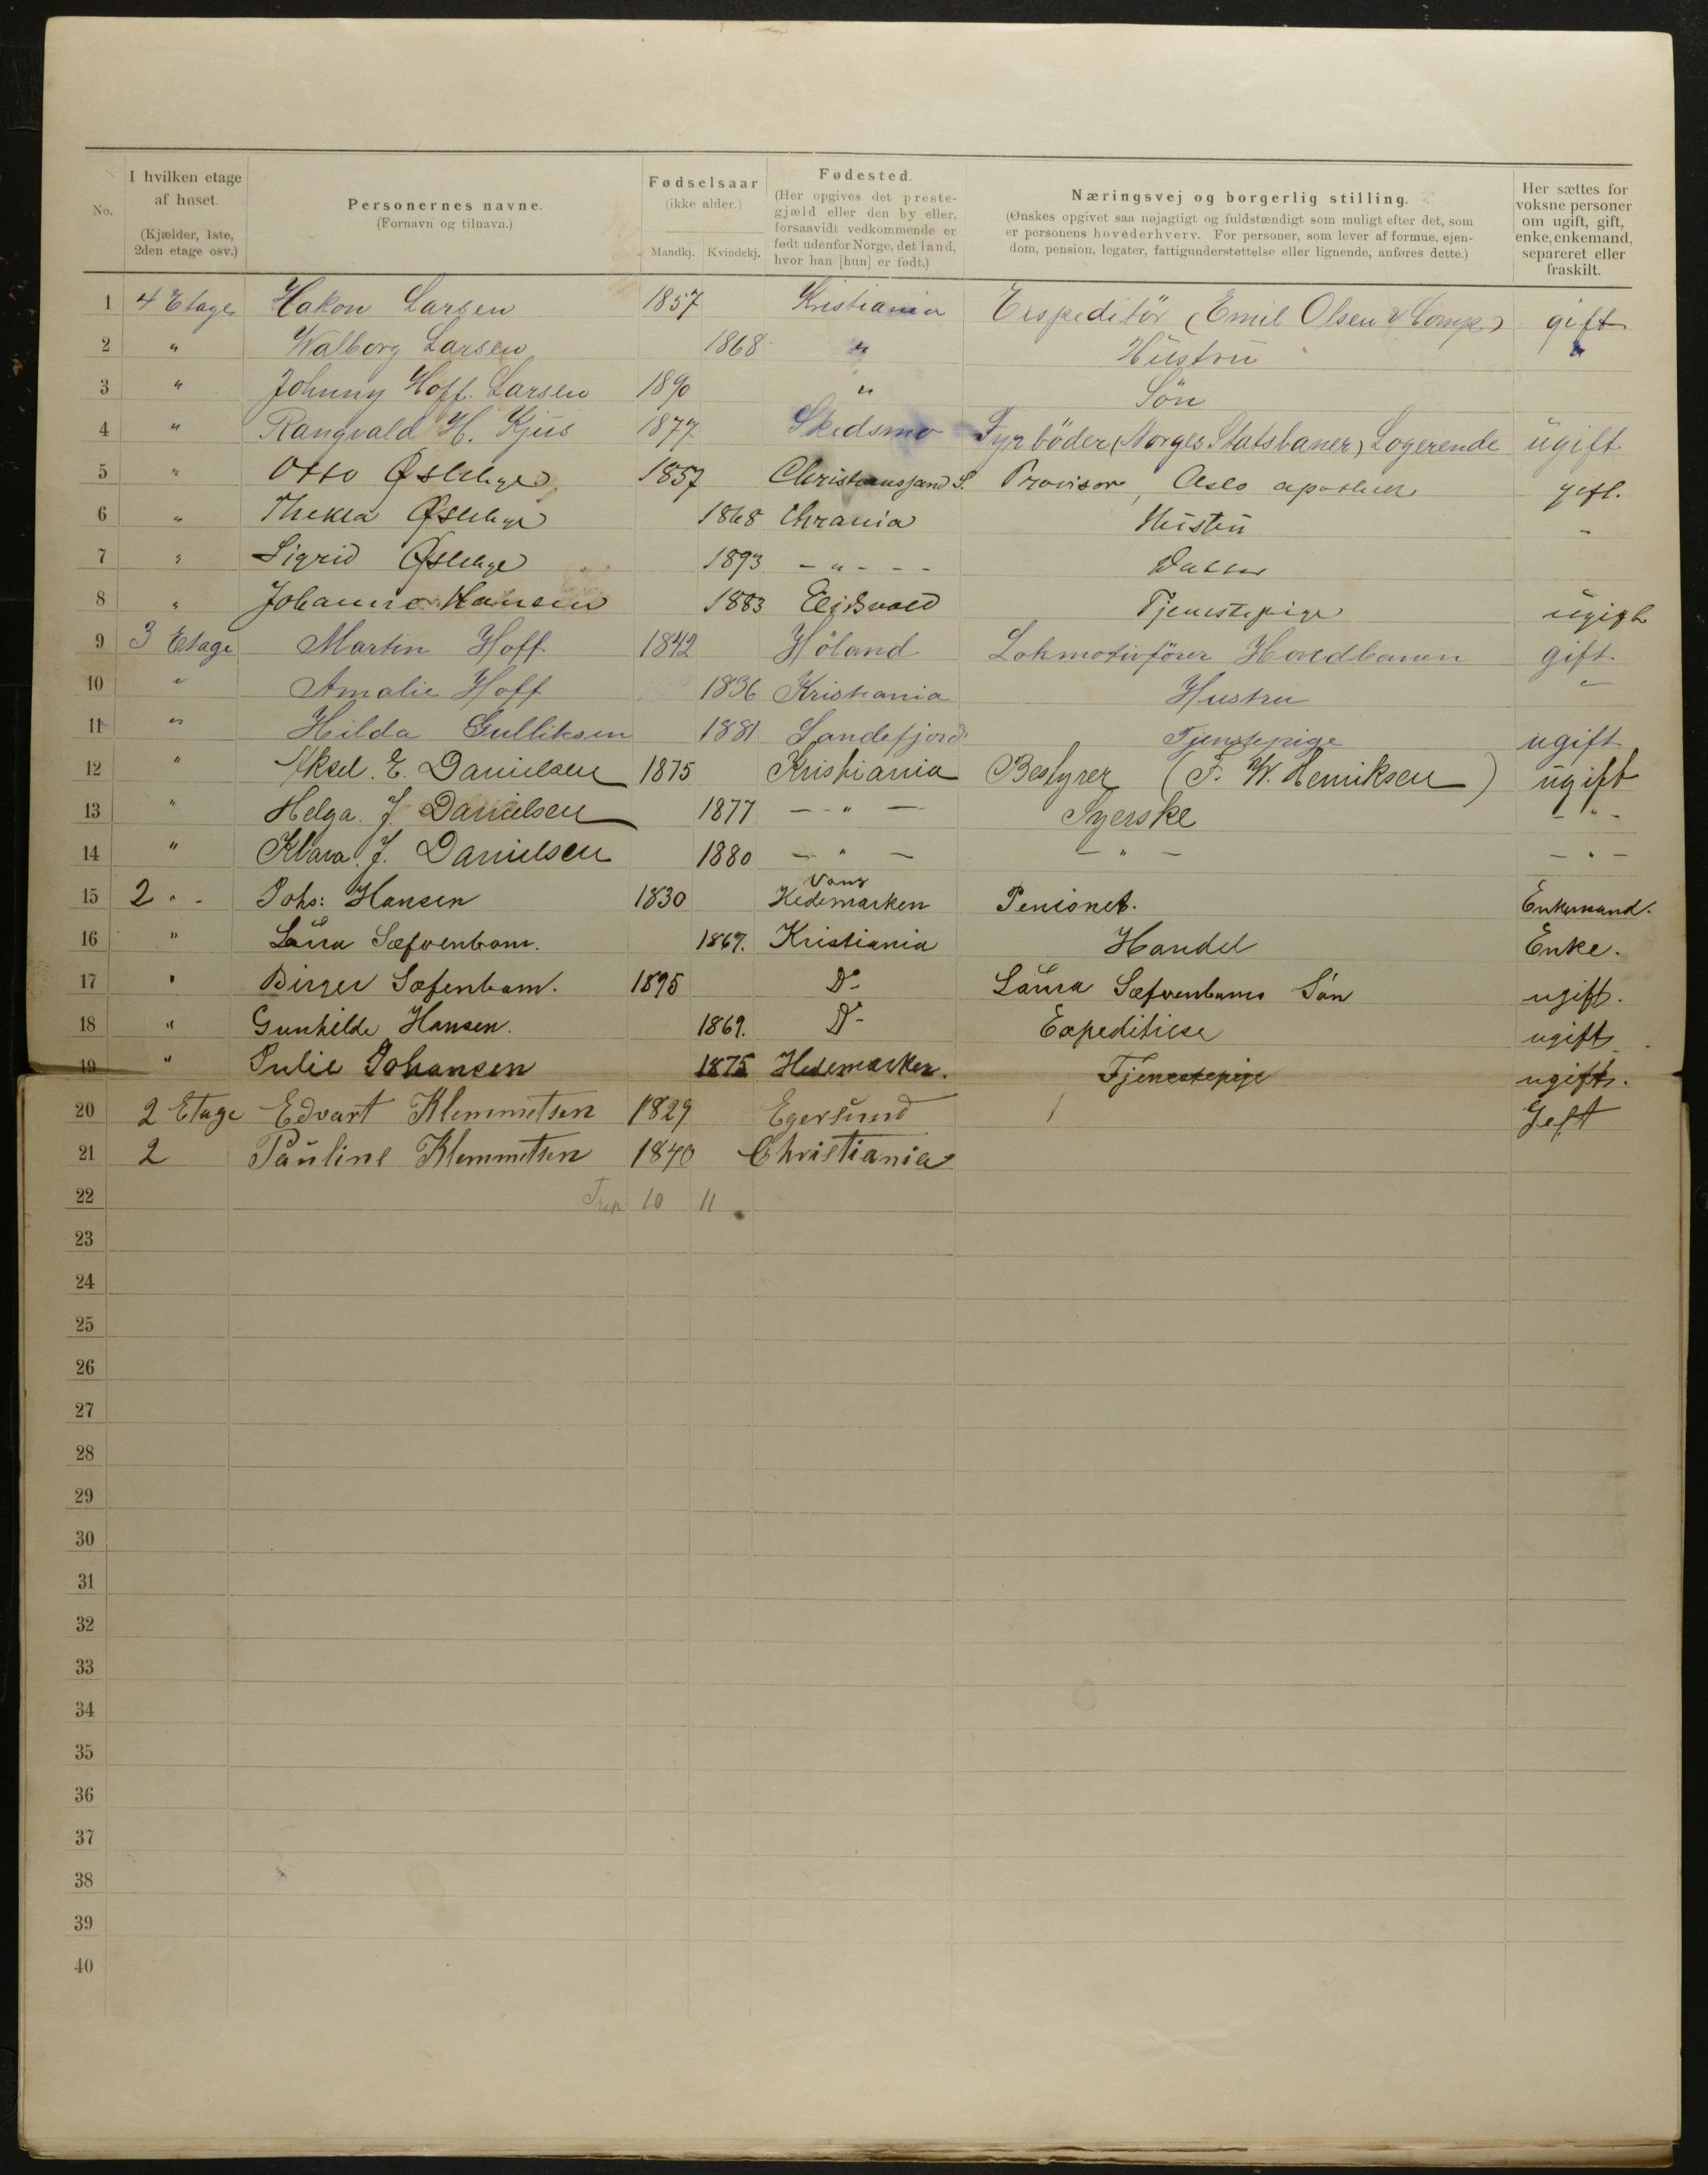 No.
I hvilken etage af huset.
(Kjælder, 1ste, 2den etage osv.)
Personernes navne.
(Fornavn og tilnavn.)
Fødselsaar
(ikke alder.)
Mandkj. Kvindekj.
Fødested.
(Her opgives det prestegjæld eller den by eller, forsaavidt vedkommende er født udenfor Norge, det land, hvor han [hun] er født.)
Næringsvej og borgerlig stilling.
(Ønskes opgivet saa nøjagtigt og fuldstændigt som muligt efter det, som er personens hovederhverv. For personer, som lever af formue, ejendom, pension, legater, fattigunderstøttelse eller lignende, anføres dette.)
Her sættes for voksne personer om ugift, gift, enke, enkemand, separeret eller fraskilt.
1 4 Etage Hakon Larsen 1857 Kristiania Expeditör (Emil Olsen & Comp.) gift
2 " Walborg Larsen 1868 " Hustru "
3 " Johnny Hoff Larsen 1890 " Sön
4 " Rangvald H. Kjus 1877 Skedsmo Fyrböder (Norges Statsbaner) Logerende ugift
5 " Otto 1857 Christianssand S. Provisor, Oslo apothek gift.
6 " Thekla 1868 Chrania Hustru "
7 " Sigrid 1893 - " - - Datter
8 " Johanne Hansen 1883 Eidsvold Tjenestepige ugift
9 3 Etage Martin Hoff 1842 Höland Lokmotivförer Hovedbanen gift
10 " Amalie Hoff 1836 Kristiania Hustru "
11 " Hilda Gulliksen 1881 Sandefjord Tjenstepige ugift
12 " Aksel. E. Danielsen 1875 Kristiania Bestyrer (F. W. Henriksen) ugift
13 " Helga. J. Danielsen 1877 - " - Syerske - " -
14 " Klara. J. Danielsen 1880 - " - - " - - " -
15 2 " - Johs: Hansen 1830 Vang Hedemarken Penisnet. Enkemand.
16 " Laura Sæfvenbom. 1867. Kristiania Handel Enke.
17 " Birger Sæfenbom. 1895 Do Laura Sæfvenboms Sön ugift.
18 " Gunhilde Hansen. 1869. Do Expeditiese ugift
19 " Julie Johansen 1875 Hedemarken. Tjenestepige ugift.
20 2 Etage Edvart Klemmetsen 1829 Egersund Gift
21 2 Pauline Klemmetsen 1840 Christiania
22 10 11
23
24
25
26
27
28
29
30
31
32
33
34
35
36
37
38
39
40